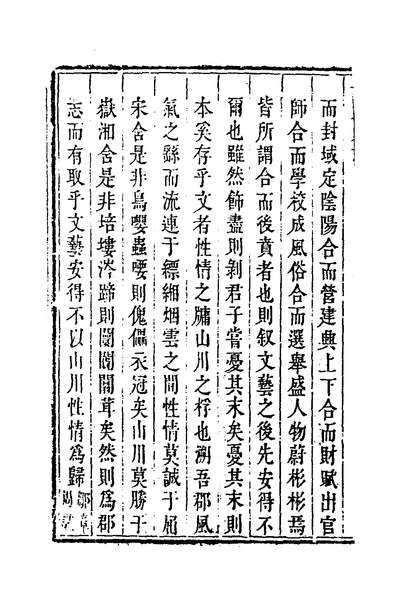 而封域定陰陽合而營建典上下合而財賦出官
師合而學校成風俗合而選舉盛人物蔚彬彬焉
皆所謂合而後賁者也則叙文藝之後先安得不
爾也雖然飾盡則剥君子嘗憂其末矣憂其末則
本奚存乎文者性情之牖山川之桴也溯吾郡風
氣之繇而流連于縹緗烟雲之間性情莫誠于屈
宋舍是非鳥嚶蟲喓則傀儡衣冠矣山川莫勝于
嶽湘舍是非培塿涔蹄則闤闠闒茸矣然則為郡
志而有取乎文藝安得不以山川性情為歸